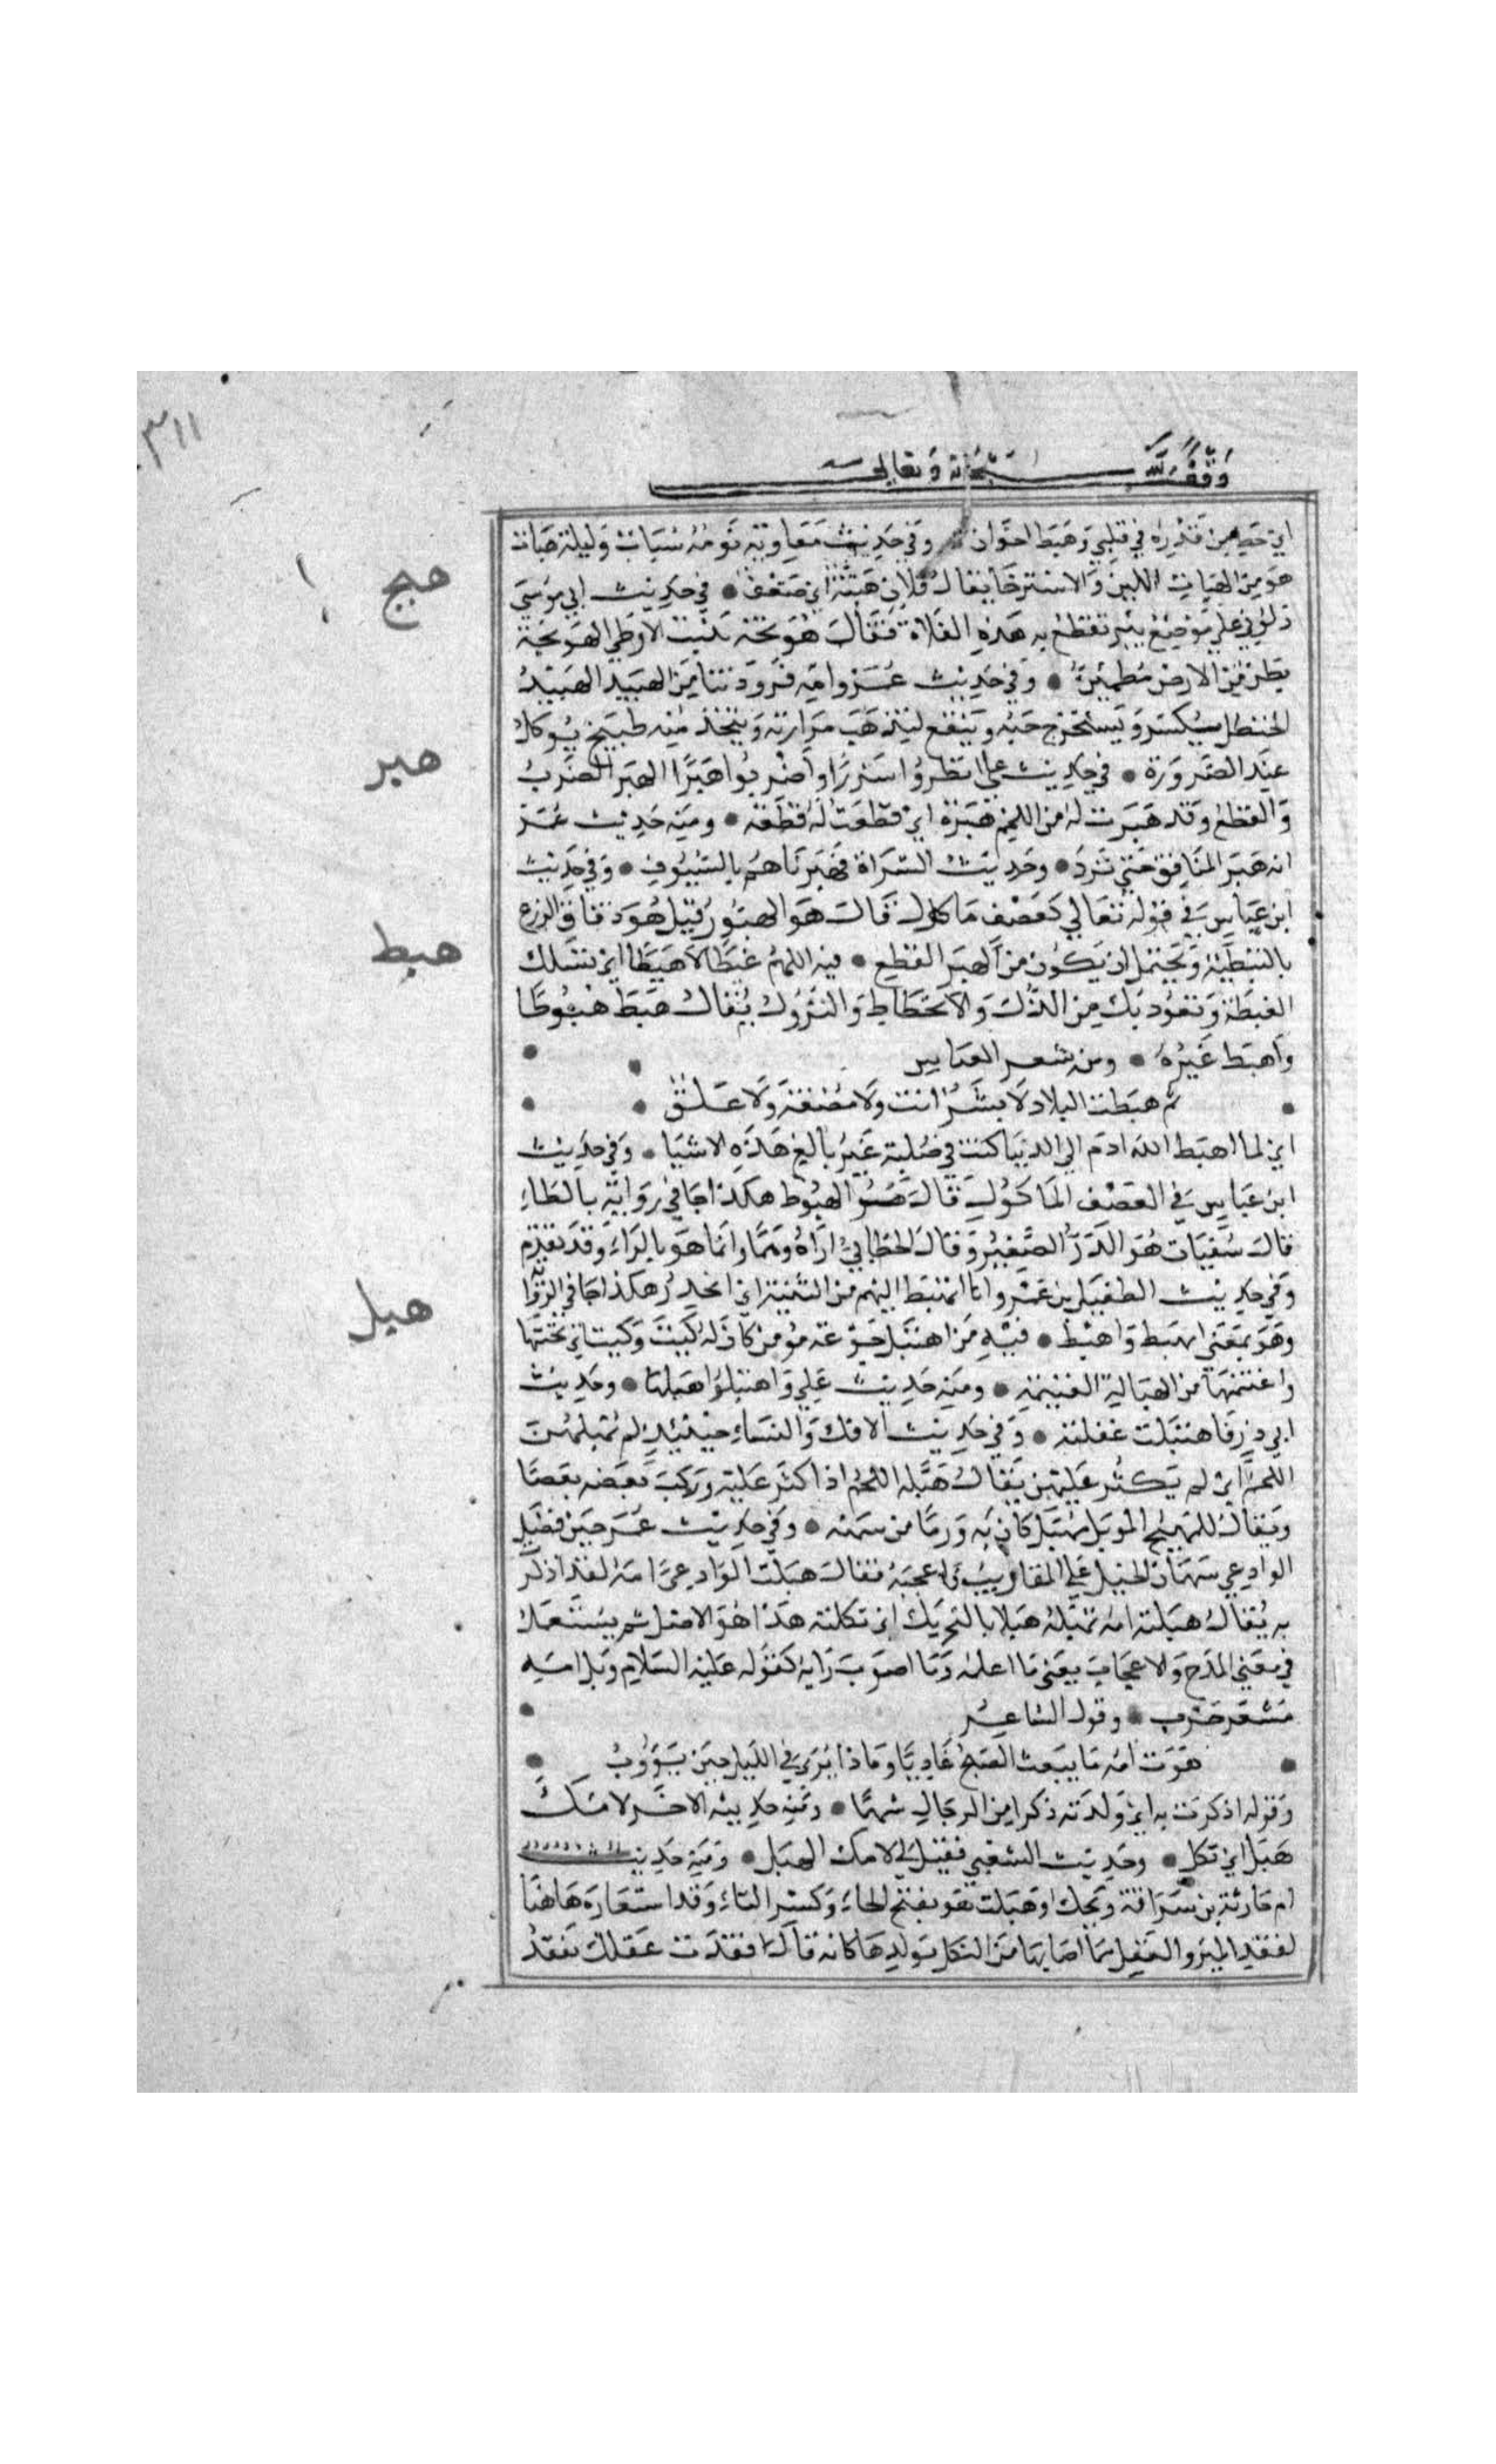 ٣١١
وقف لله سبحانه وتعالى
اي حط من قدره في قلبي وهبط اخوان وفي حديث معاوية نومه سبات وليله هبات
هو من الهبات اللين والاسترخا يقال فلان هبتة اي ضعف • في حديث ابي موسى
دلوني على موضع بير تقطع به هذه الفلاة فقال هوبجة تنبت الارطى الهوبجة
بطن من الارض مطمئن • وفي حديث عمر وامه فزودتنا من الهبيد الهبيد
الحنظل يكسر ويستخرج حبه وينقع لتذهب مرارته ويتخذ منه طبيخ يوكل
عند الضرورة • في حديث علي انظروا شزرا واضربوا هبرا الهبر الضرب
والقطع وقد هبرت له من اللحم هبرة اي قطعت له قطعة • ومنه حديث عمر
انه هبر المنافق حتى برد • وحديث الشراة فهبرناهم بالسيوف • وفي حديث
ابن عباس في قوله تعالى كعصف ماكول قال هو الهبور قيل هو دقاق الزرع
بالنبطية ويحتمل ان يكون من الهبر القطع • فيه اللهم غبطا لا هبطا اي نسلك
الغبطة ونعوذ بك من الذل والانحطاط والنزول يقال هبط هبوطا
واهبط غيره • ومن شعر العباس
ثم هبطت البلاد لا بشر انت ولا مضغة ولا علق
اي لما اهبط الله ادم الى الدنيا كنت في صلبه غير بالغ هذه الاشيا • وفي حديث
ابن عباس في العصف الماكول قال هو الهبوط هكذا جا في رواية بالطاء
قال سفيان هو الذر الصغير وقال الخطابي اراه وهما وانما هو بالراء وقد تقدم
وفي حديث الطفيل بن عمرو انا اتهبط اليهم من الثنية اي انحدر هكذا جا في الرواية
وهو بمعنى اهبط واهبط • فيه من اهتبل جوعة مومن كان له كيت وكيت اي تحينها
واغتنمها من الهبالة الغنيمة • ومنه حديث علي واهتبلوا هبلها • وحديث
ابي ذر فاهتبلت غفلته • وفي حديث الافك والنساء حينئذ لم يهبلهن
اللحم اي لم يكثر عليهن يقال هبله اللحم اذا كثر عليه وركب بعضه بعضا
ويقال للمهبج الموبل مهبل كان به ورما من سمنه • وفي حديث عمر حين فضل
الوادعي سهمان الخيل على المقاريف فاعجبه فقال هبلت الوادعي امه لقد اذكرت
به يقال هبلته امه تهبله هبلا بالتحريك اي ثكلته هذا هو الاصل ثم يستعمل
في معنى المدح والاعجاب يعني ما اعلمه وما اصوب رايه كقوله عليه السلام ويل امه
مسعر حرب • وقول الشاعر
هوت امه ما يبعث الصبح غاديا وماذا يرى في الليل حين يؤوب
وقوله اذكرت به اي ولدته ذكرا من الرجال شهما • ومنه حديثه الاخر لامك
هبل اي ثكل • وحديث الشعبي فقيل لي لامك الهبل • ومنه حديث
ام حارثة بن سراقة ويحك اوهبلت هو بفتح الهاء وكسر الباء وقد استعاره هاهنا
لفقد الميز والعقل مما اصابها من الثكل بولدها كانه قال افقدت عقلك بفقد
هبج
هبر
هبط
هبل